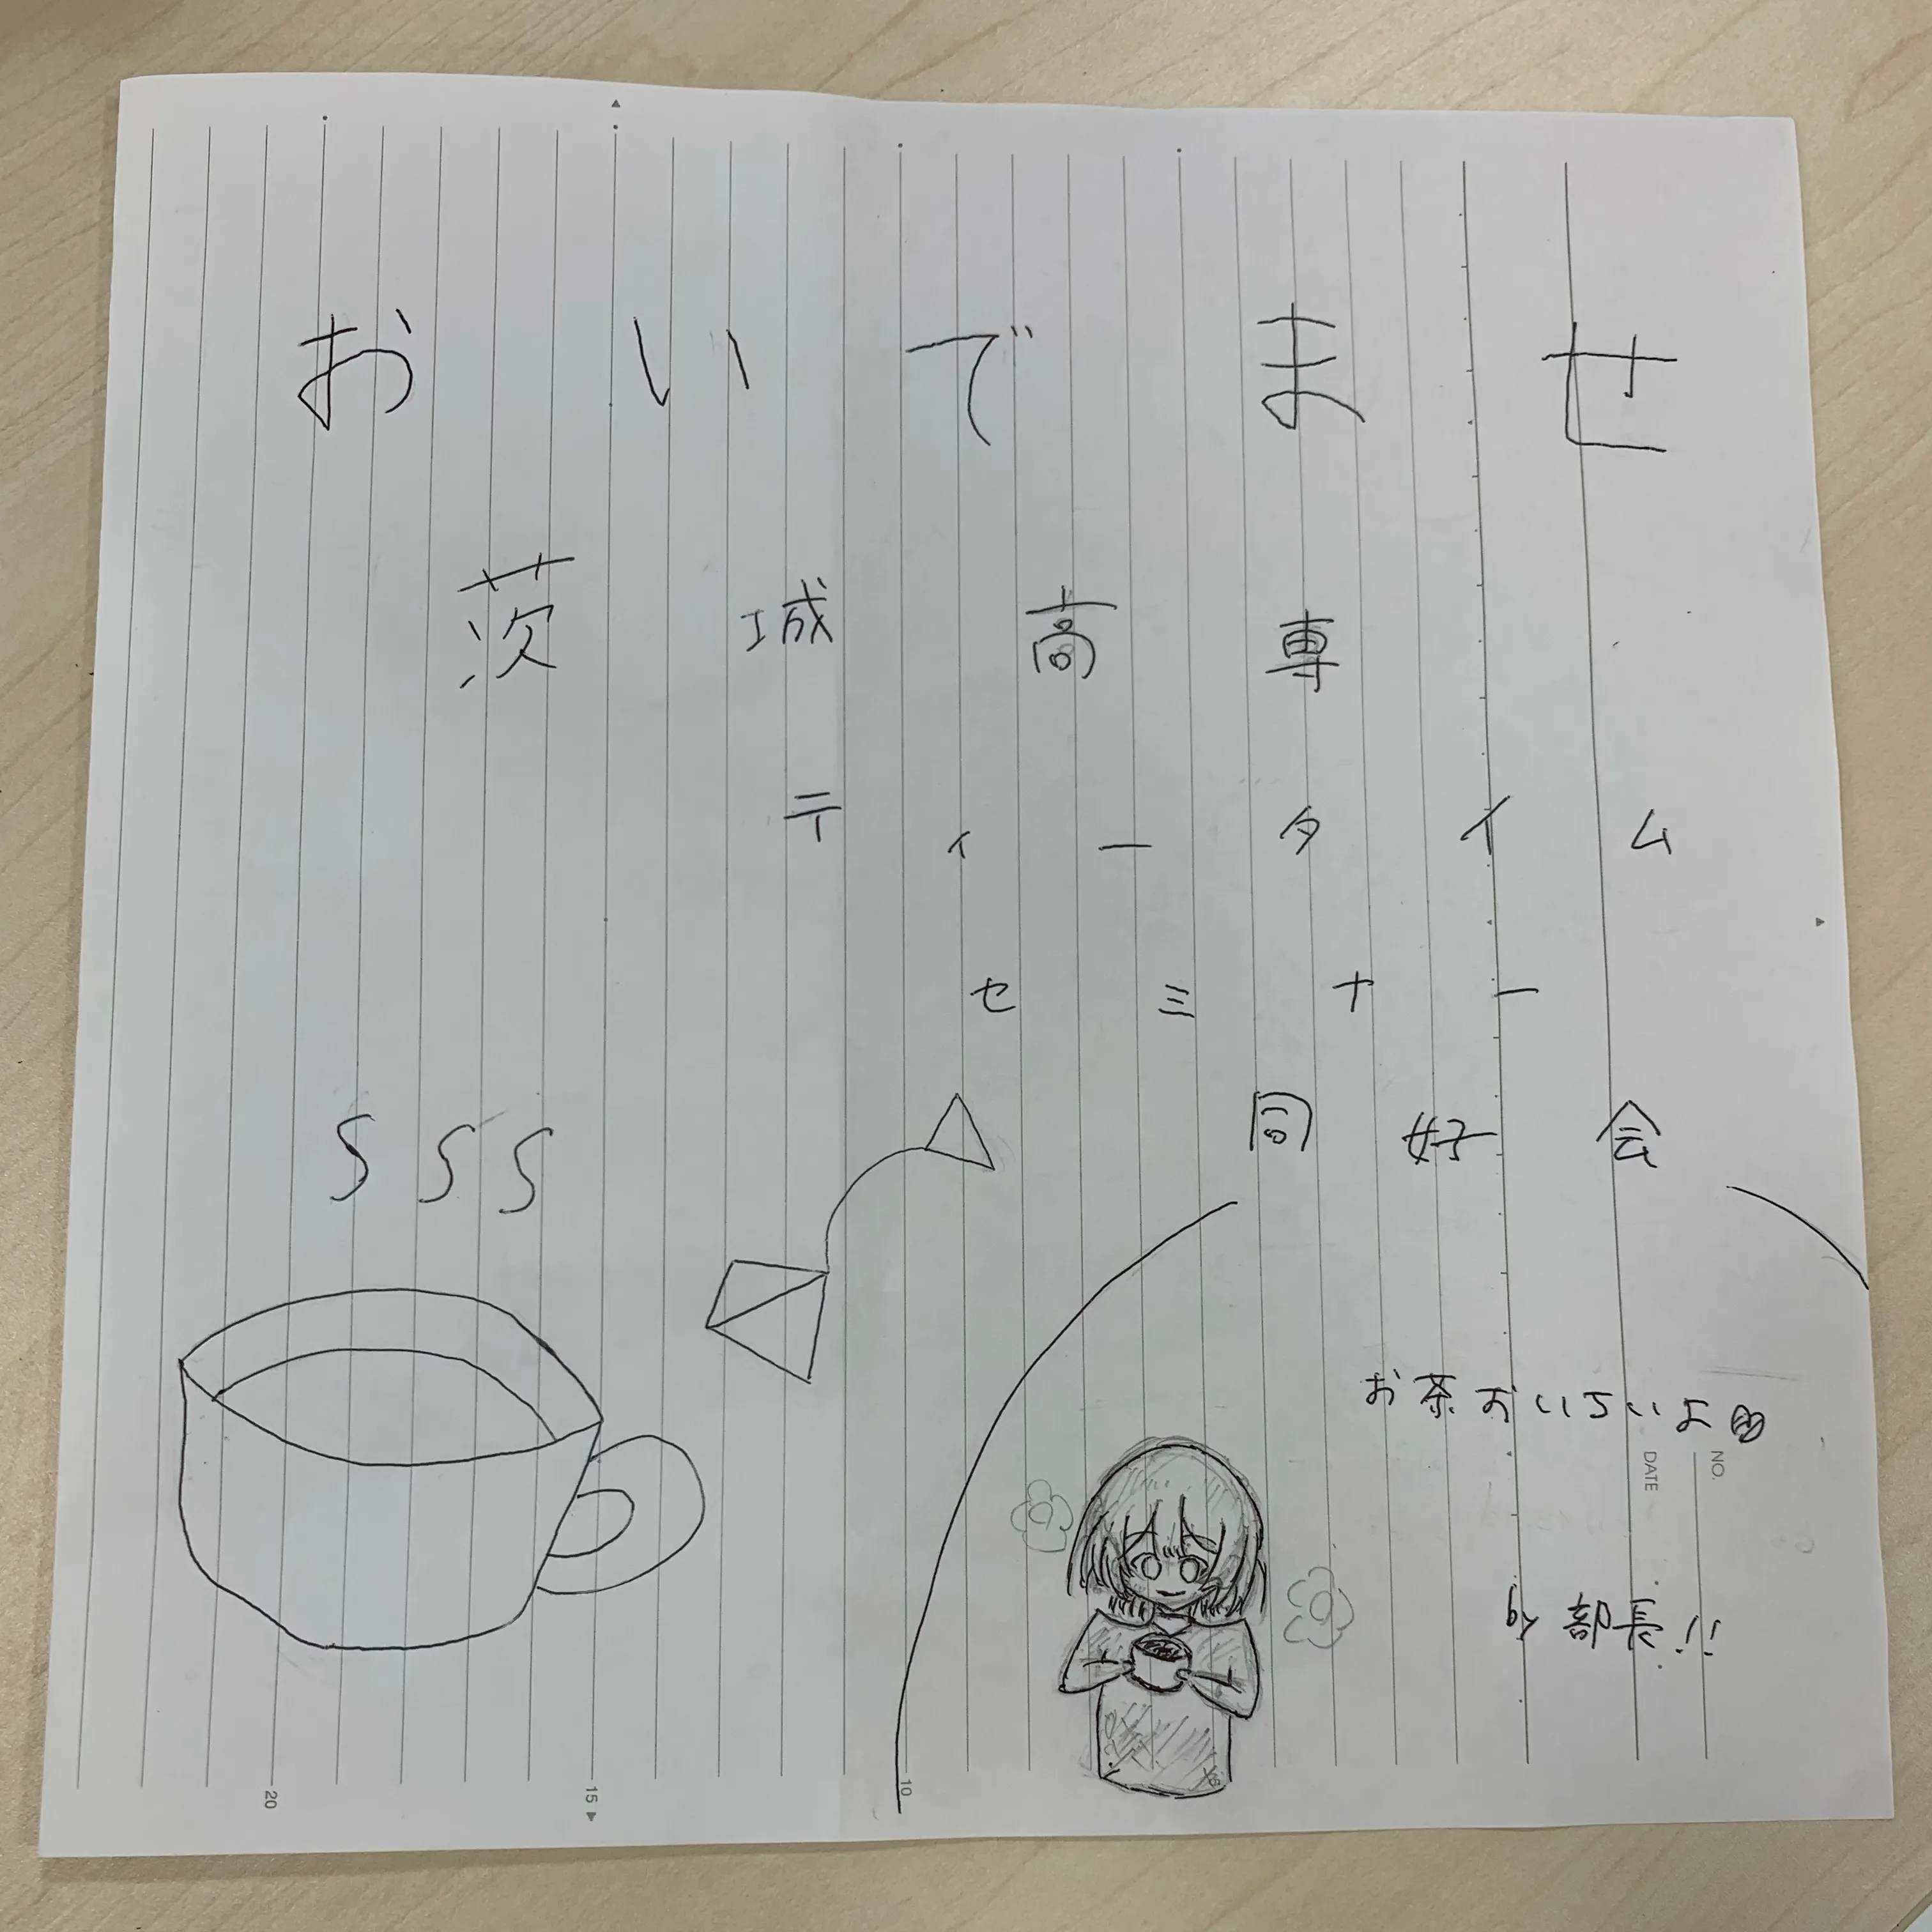 おいでませ
茨城高専
ティータイム
セミナー
同好会
お茶おいちいよ
by 部長!!
NO.
DATE
20
15
10